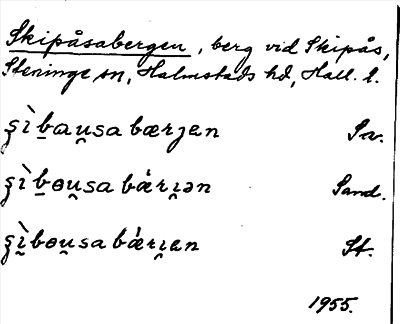 Skipåsabergen, berg vid Skipås,
Steninge sn, Halmstads hd, Hall. l.
ʂìb̲au̯sabærȷen Sa.
ʂìb̲ɵu̯sabǽri̯ən Sand.
ʂì̯bɵu̯sabǽri̯en St.
1955.